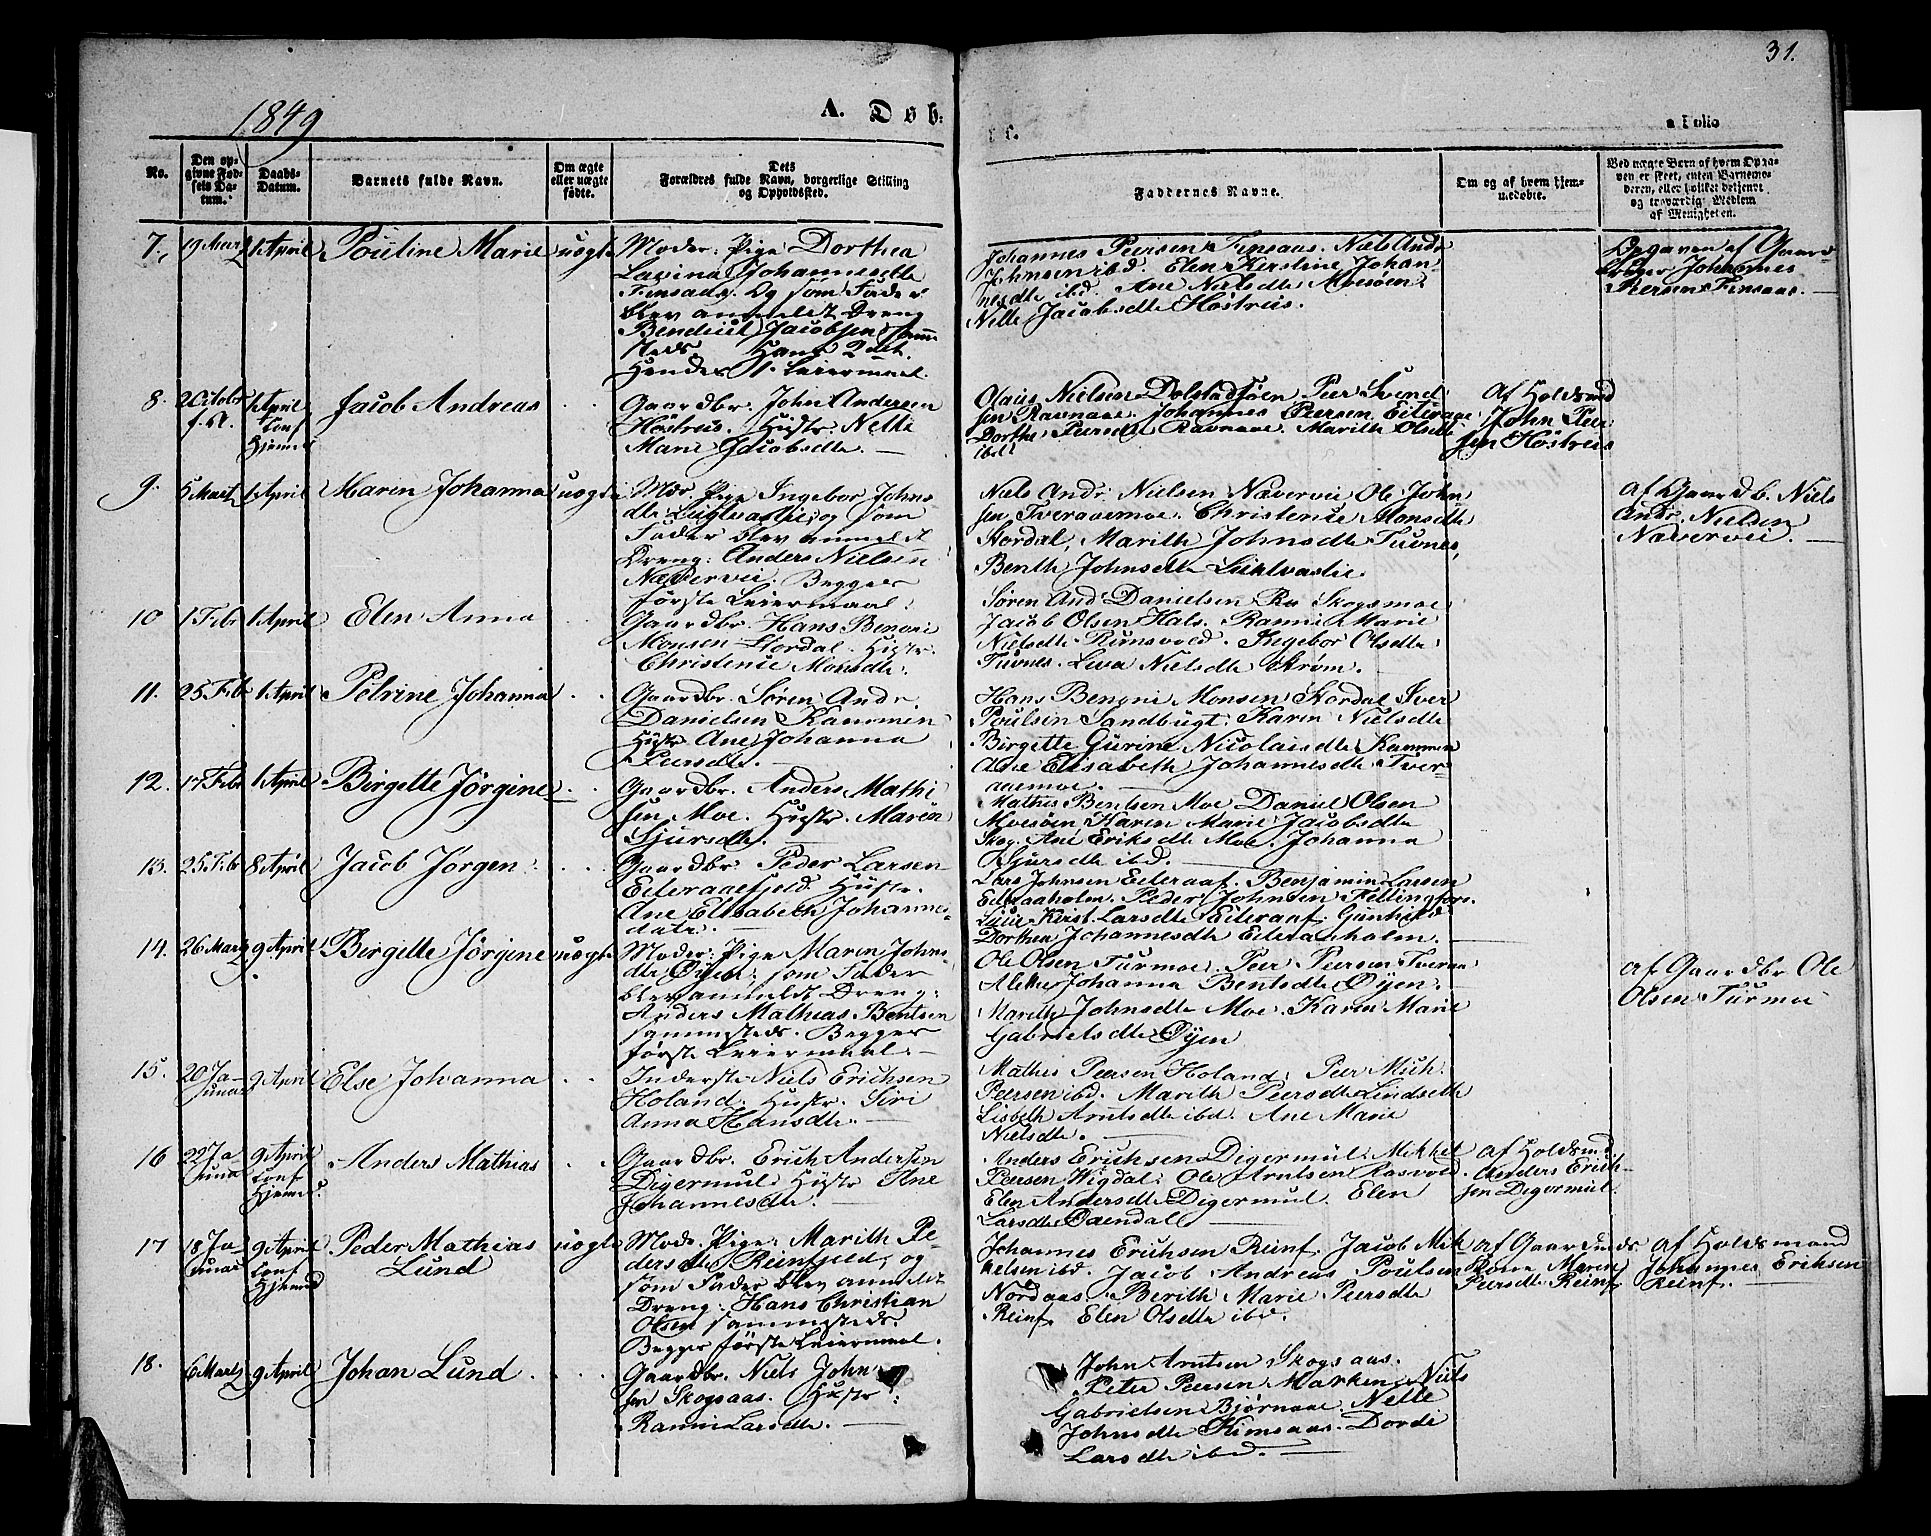 31.
1849
A. Døb
a Folio
No.
Den opgivne Fødsels Datum.
Daabs-Datum.
Barnets fulde Navn.
Om ægte eller uægte fødte.
Forældres fulde Navn, borgerlige Stilling og Opholdssted.
Faddernes Navne.
Om og af hvem hjemmedøbt.
7.
19 Marz
1 April
Pouline Marie
uægte
Moder: Pige Dorthea
Lavina Johannesdtr
Finsaas. Og som Fader
blev anmeldt Dreng
Bendict Jacobsen samme
steds. Hans 2det
Hendes 1. Leiermaal.
Johannes Peersen Finsaas. Niels Andr
Johnsen ibd. Elen Kerstine Johan-
nesdtr ibd. Ane Nielsdtr Moesøen.
Nelle Jacobsdtr Høstreis.
Opgaven af Gaard-
bruger Johannes
Peersen Finsaas.
8.
20 Octobr
f. A.
1 April
Conf
Hjemmed
Jacob Andreas
Gaardbr. John Andersen
Høstreis. Hustr. Nelle
Marie Jacobsdtr.
Olaus Nielsen Dolstadsøen Peer Svend
sen Ravnaae. Johannes Peersen Eiteraae
Dorthe Peersdtr Ravnaae. Marith Olsdtr
ibd.
Af Holdsmd
John Peer
sen Høstreis
9.
5 Marts
1 April
Maren Johanna
uægte
Modr. Pige Ingebor Johns
dtr Luktvaslie, og som
Fader blev anmeldt
Dreng: Anders Nielsen
Nævervie. Begges
første Leiermaal.
Niels Andr. Nielsen Nævervie Ole John
sen Tveraaemoe. Christense Monsdtr
Stordal, Marith Johnsdtr Tuvnes,
Benth Johnsdtr Luktvaslie.
af Gaardb. Niels
Andr. Nielsen
Nævervie.
10
1 Febr
1 April
Elen Anna
Gaardbr. Hans Benoni
Monsen Stordal. Hustr.
Christense Monsdtr.
Søren And Danielsen Skogsmoe
Jacob Olsen Hals. Ranni Marie
Nielsdtr Runsvold. Ingebor Olsdtr
Tuvnes. Lava Nielsdtr Strøm.
11.
25 Febr
1 April
Petrine Johanna
Gaardbr. Søren Andr.
Danielsen Kammen
Hustr. Ane Johanna
Peersdtr.
Hans Benoni Monsen Stordal Iver
Poulsen Sandbugt. Karen Nielsdtr
Birgette Gurine Nicolaisdtr Kammen
Ane Elisabeth Johannesdtr Tver-
aaemoe.
12.
17 Febr
1 April
Birgette Jørgine
Gaardbr. Anders Mathi
sen Moe. Hustr. Maren
Sjursdtr.
Mathis Bentsen Moe Daniel Olsen
Moesøen, Karen Marie Jacobsdtr
Skog. Ane Eriksdtr Moe. Johanna
Sjursdtr ibd.
13.
25 Febr
8 April
Jacob Jørgen
Gaardbr. Peder Larsen
Eiteraaefjeld. Hustr.
Ane Elisabeth Johannes-
datr.
Lars Johnsen Eiteraaf. Benjamin Larsen
Eiteraaholm. Peder Johnsen Fellingfors
Kirst. Larsdtr Eiteraaf. Gunhild
Dorthea Johannesdtr Eiteraaholm.
14.
26 Marz
9 April
Birgette Jørgine
uægte
Moder: Pige Maren Johns
dtr Øyen; som Fader
blev anmeldt Dreng:
Anders Mathias Bentsen
sammesteds. Begges
første Leiermaal.
Ole Olsen Turmoe. Peer Peersen Tveraa
Alethe Johanna Bentsdtr Øyen.
Marith Johnsdtr Moe. Karen Marie
Gabrielsdtr Øyen
af Gaardbr Ole
Olsen Turmoe
15.
20 Ja-
nuar
9 April
Else Johanna
Inderste Niels Erichsen
Holand. Hustr. Siri
Anna Hansdtr.
Mathis Peersen Holand, Peer Mich.
Peersen ibd. Marith Peersdtr Lindseth
Lisbeth Arntsdtr ibd. Ane Marie
Nielsdtr.
16
22 Ja
nuar
9 April
Conf
Hjemmed
Anders Mathias
Gaardbr. Erich Andersen
Digermul, Hustr Ane
Johannesdtr.
Anders Erichsen Digermul, Mikkel
Peersen Wigdal, Ole Arntsen Rosvold.
Elen Andersdtr Digermul, Elen
Larsdtr
Af Holdsmd.
Anders Erich-
sen Digermul.
17
18 Ja
nuar
9 April
Conf
Hjemmed
Peder Mathias
Lund
uægte
Mod. Pige: Marith Pe-
dersdtr Reinfjeld, og
som Fader blev anmeldt
Dreng: Hans Christian
Olsen sammesteds
Begges første Leiermaal.
Johannes Erichsen Reinf. Jacob Mik
kelsen ibd. Jacob Andreas Poulsen
Nordaas. Berith Marie Peersdtr
Reinf. Elen Olsdtr ibd.
af Gaardmds
Kone Maren
Peersdtr Reinf.
af Holdsmand
Johannes Erichsen
Reinf.
18.
6 Marts
9 April
Johan Lund
Gaardbr. Niels John
sen Skogsaas. Hustr:
Ranni Larsdtr.
John Arntsen Skogsaas.
Peter Peersen Marken. Niels
Gabrielsen Bjørnaae. Nelle
Johnsdtr Kimsaas. Dordi
Larsdtr ibd.